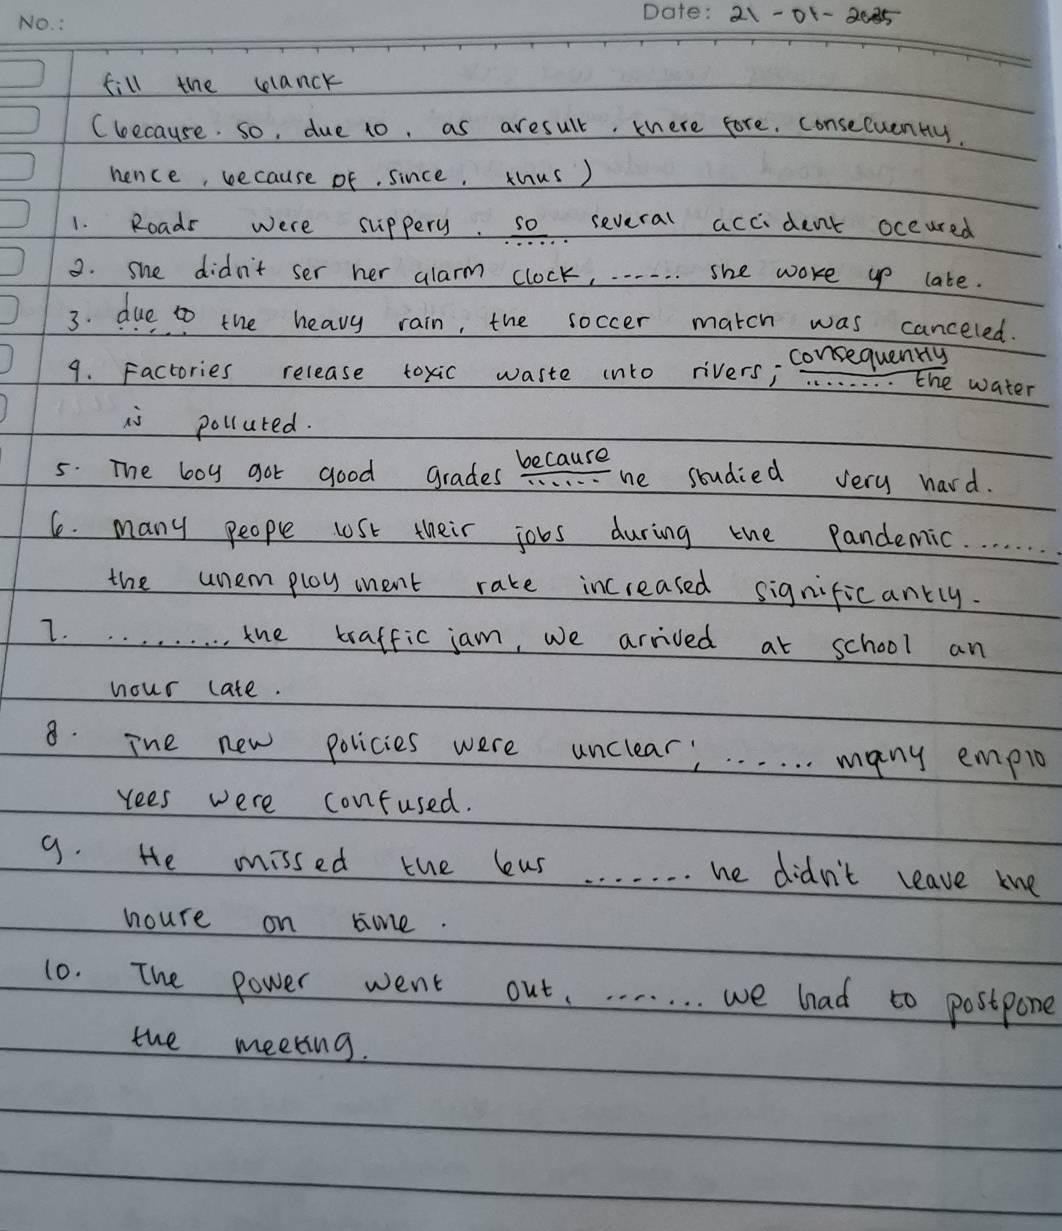 No.:
Date: 21 - 01 - 2025
fill the blanck
(because. so, due to, as aresult, there fore, consecuently,
hence, because of, since, thus)
1. Roads were slippery. so several accident occured
2. she didn't set her alarm clock, ...... she woke up late.
3. due to the heavy rain, the soccer match was canceled.
4. Factories release toxic waste into rivers; consequently the water
is polluted.
5. The boy got good grades because he studied very hard.
6. Many people lost their jobs during the Pandemic........
the unemployment rate increased significantly.
7. .......... the traffic jam, we arrived at school an
hour late.
8. The new policies were unclear; ...... many emplo
yees were confused.
9. He missed the bus ....... he didn't leave the
house on time.
10. The power went out, ....... we had to postpone
the meeting.